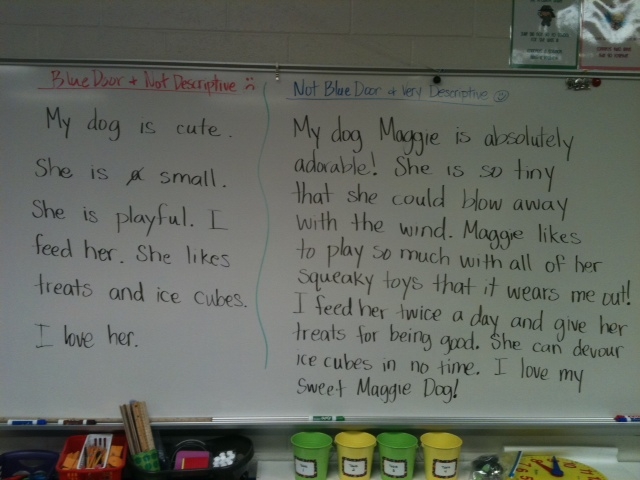 Blue Door + Not Descriptive
My dog is cute.
She is small.
She is playful. I
feed her. She likes
treats and ice cubes.
I love her.
Not Blue Door & Very Descriptive
My dog Maggie is absolutely
adorable! She is so tiny
that she could blow away
with the wind. Maggie likes
to play so much with all of her
squeaky toys that it wears me out!
I feed her twice a day and give her
treats for being good. She can devour
ice cubes in no time. I love my
sweet Maggie Dog!